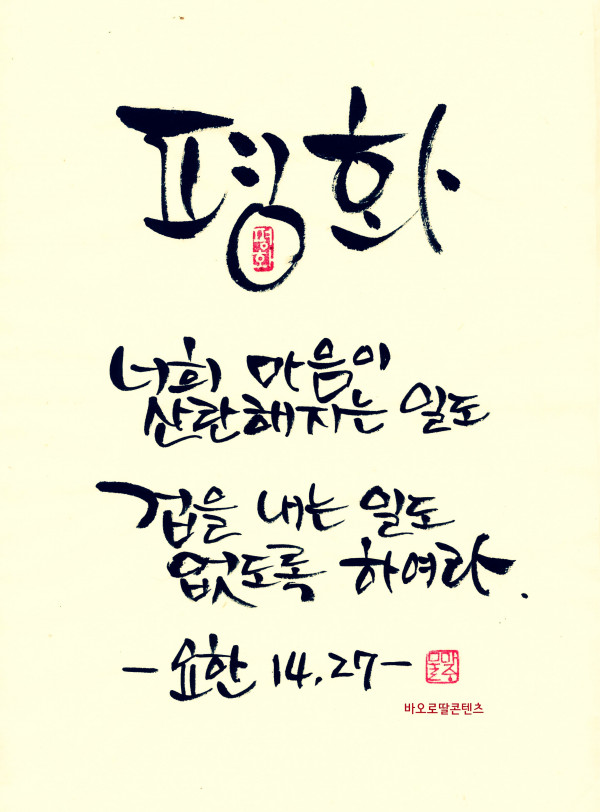 평화
평화
너희 마음이
산란해지는 일도
겁을 내는 일도
없도록 하여라.
-요한 14,27-
바오로딸콘텐츠